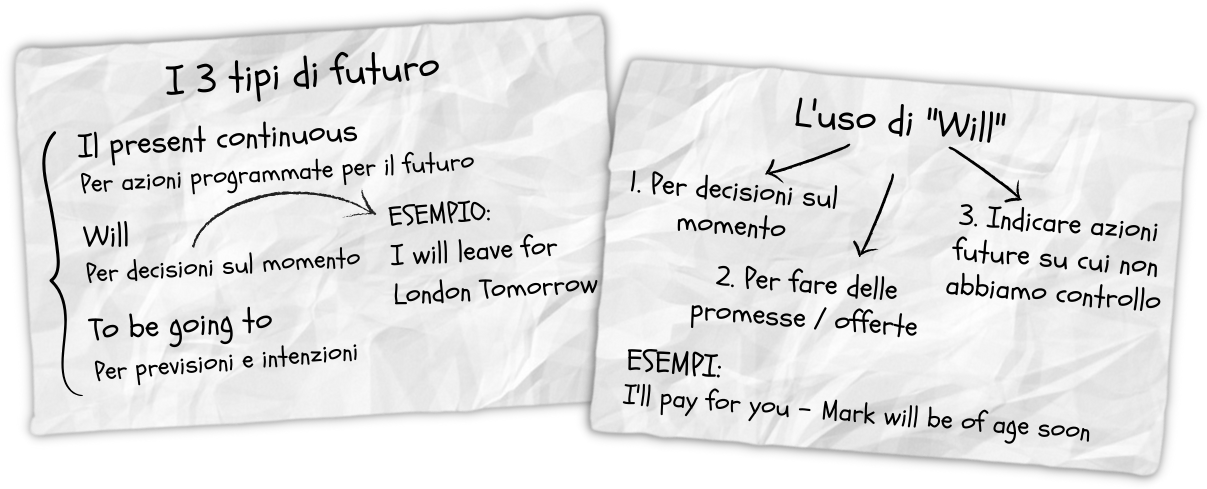 I 3 tipi di futuro
Il present continuous
Per azioni programmate per il futuro
Will
Per decisioni sul momento
ESEMPIO:
I will leave for
London Tomorrow
To be going to
Per previsioni e intenzioni
L'uso di "Will"
1. Per decisioni sul
momento
2. Per fare delle
promesse / offerte
3. Indicare azioni
future su cui non
abbiamo controllo
ESEMPI:
I'll pay for you - Mark will be of age soon